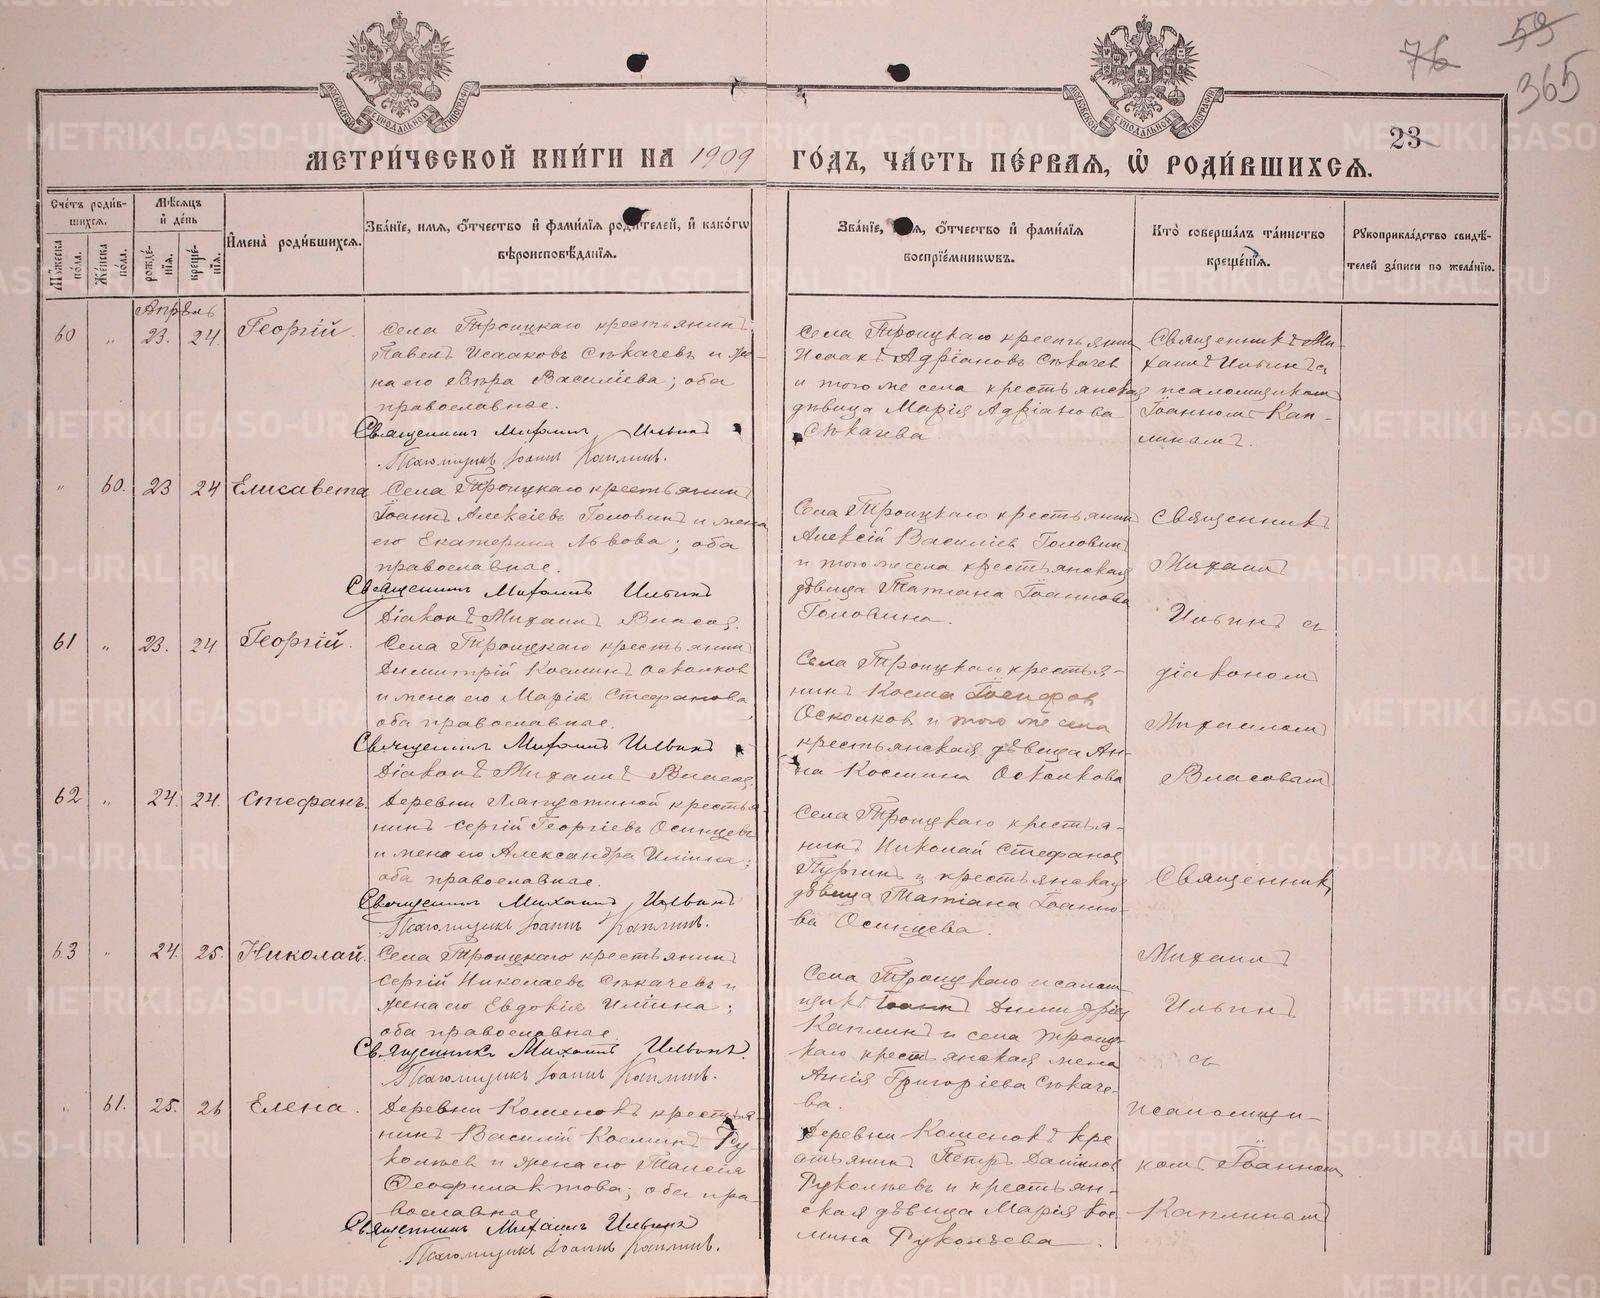 76 59
365
23
МЕТРИ́ЧЕСКОЙ КНИ́ГИ НА 1909 ГО́ДЪ, ЧА́СТЬ ПЕ́РВАѦ, Ѽ РОДИ́ВШИХСѦ.
Сче́тъ роди́в-
шихсѧ.
Мꙋ́жеска по́ла.
Же́нска по́ла.
Мѣ́сѧцъ и҆ де́нь
рожде́-
нїѧ.
креще́-
нїѧ.
И҆мена̀ роди́вшихсѧ.
Зва́нїе, и҆мѧ, ѻ҆́тчество и҆ фами́лїѧ роди́телей, и҆ како́гѡ
вѣроисповѣ́данїѧ.
Зва́нїе, ѻ҆́тчество и҆ фами́лїѧ
воспрїе́мникѡвъ.
Кто̀ соверша́лъ та́инство
креще́нїѧ.
Рꙋкоприкла́дство свидѣ́-
телей за́писи по жела́нїю.
Апрѣль
60 " 23. 24. Георгій.
Села Троицкаго крестьянинъ
Павелъ Исааковъ Сѣкачевъ и же-
на его Вѣра Василіева; оба
православные.
Священникъ Михаилъ Ильинъ
Псаломщикъ Іоаннъ Каплинъ.
Села Троицкаго крестьянинъ
Исаакъ Адріановъ Сѣкачев
и того же села крестьянская
дѣвица Марія Адріанова
Сѣкачева.
Священникъ Ми-
хаилъ Ильинъ съ
псаломщикомъ
Іоанномъ Кап-
линымъ.
" 60. 23 24 Елисавета
Села Троицкаго крестьянинъ
Іоаннъ Алексіевъ Головинъ и жена
его Екатерина Львова; оба
православные.
Священникъ Михаилъ Ильинъ
Діаконъ Михаилъ Власов.
Села Троицкаго крестьянинъ
Алексій Василіев Головинъ
и того же села крестьянская
дѣвица Татіана Іоаннова
Головина.
Священникъ
Михаилъ
Ильинъ съ
61 " 23. 24 Георгій.
Села Троицкаго крестьянинъ
Димитрій Косминъ Осколков
и жена его Марія Стефанова,
оба православные.
Священникъ Михаилъ Ильинъ
Діаконъ Михаилъ Власов.
Села Троицкаго крестья-
нинъ Косма Іосифов
Осколков и того же села
крестьянская дѣвица Ан-
на Космина Осколкова
діакономъ
Михаиломъ
Власовымъ
62 " 24. 24. Стефанъ.
Деревни Лапустиной крестья-
нинъ Сергій Георгіевъ Осинцевъ
и жена его Александра Иліина;
оба православные.
Священникъ Михаилъ Ильинъ
Псаломщикъ Іоаннъ Каплинъ.
Села Троицкаго крестья-
нинъ Николай Стефанов
Пургин и крестьянская
дѣвица Татіана Іоанно-
ва Осинцева.
Священникъ
63 " 24. 25. Николай.
Села Троицкаго крестьянинъ
Сергій Николаевъ Сѣкачевъ и
жена его Евдокія Иліина;
оба православные.
Священникъ Михаилъ Ильинъ.
Псаломщикъ Іоаннъ Каплинъ.
Села Троицкаго псалом-
щикъ Іоаннъ Димитріев
Каплинъ и села Троиц-
каго крестьянская жена
Анна Григоріева Сѣкаче-
ва.
Михаилъ
Ильинъ
съ
" 61. 25. 26 Елена.
Деревни Кошеновъ крестья-
нинъ Василій Косминъ Ру-
колѣев и жена его Таисія
Ѳеофилактова; оба пра-
вославные
Священникъ Михаилъ Ильинъ
Псаломщикъ Іоаннъ Каплинъ.
Деревни Кошеновъ кре-
стьянинъ Петръ Даніилов
Руколѣевъ и крестьян-
ская дѣвица Марія Кос-
мина Руколѣева.
псаломщи-
комъ Іоанномъ
Каплинымъ